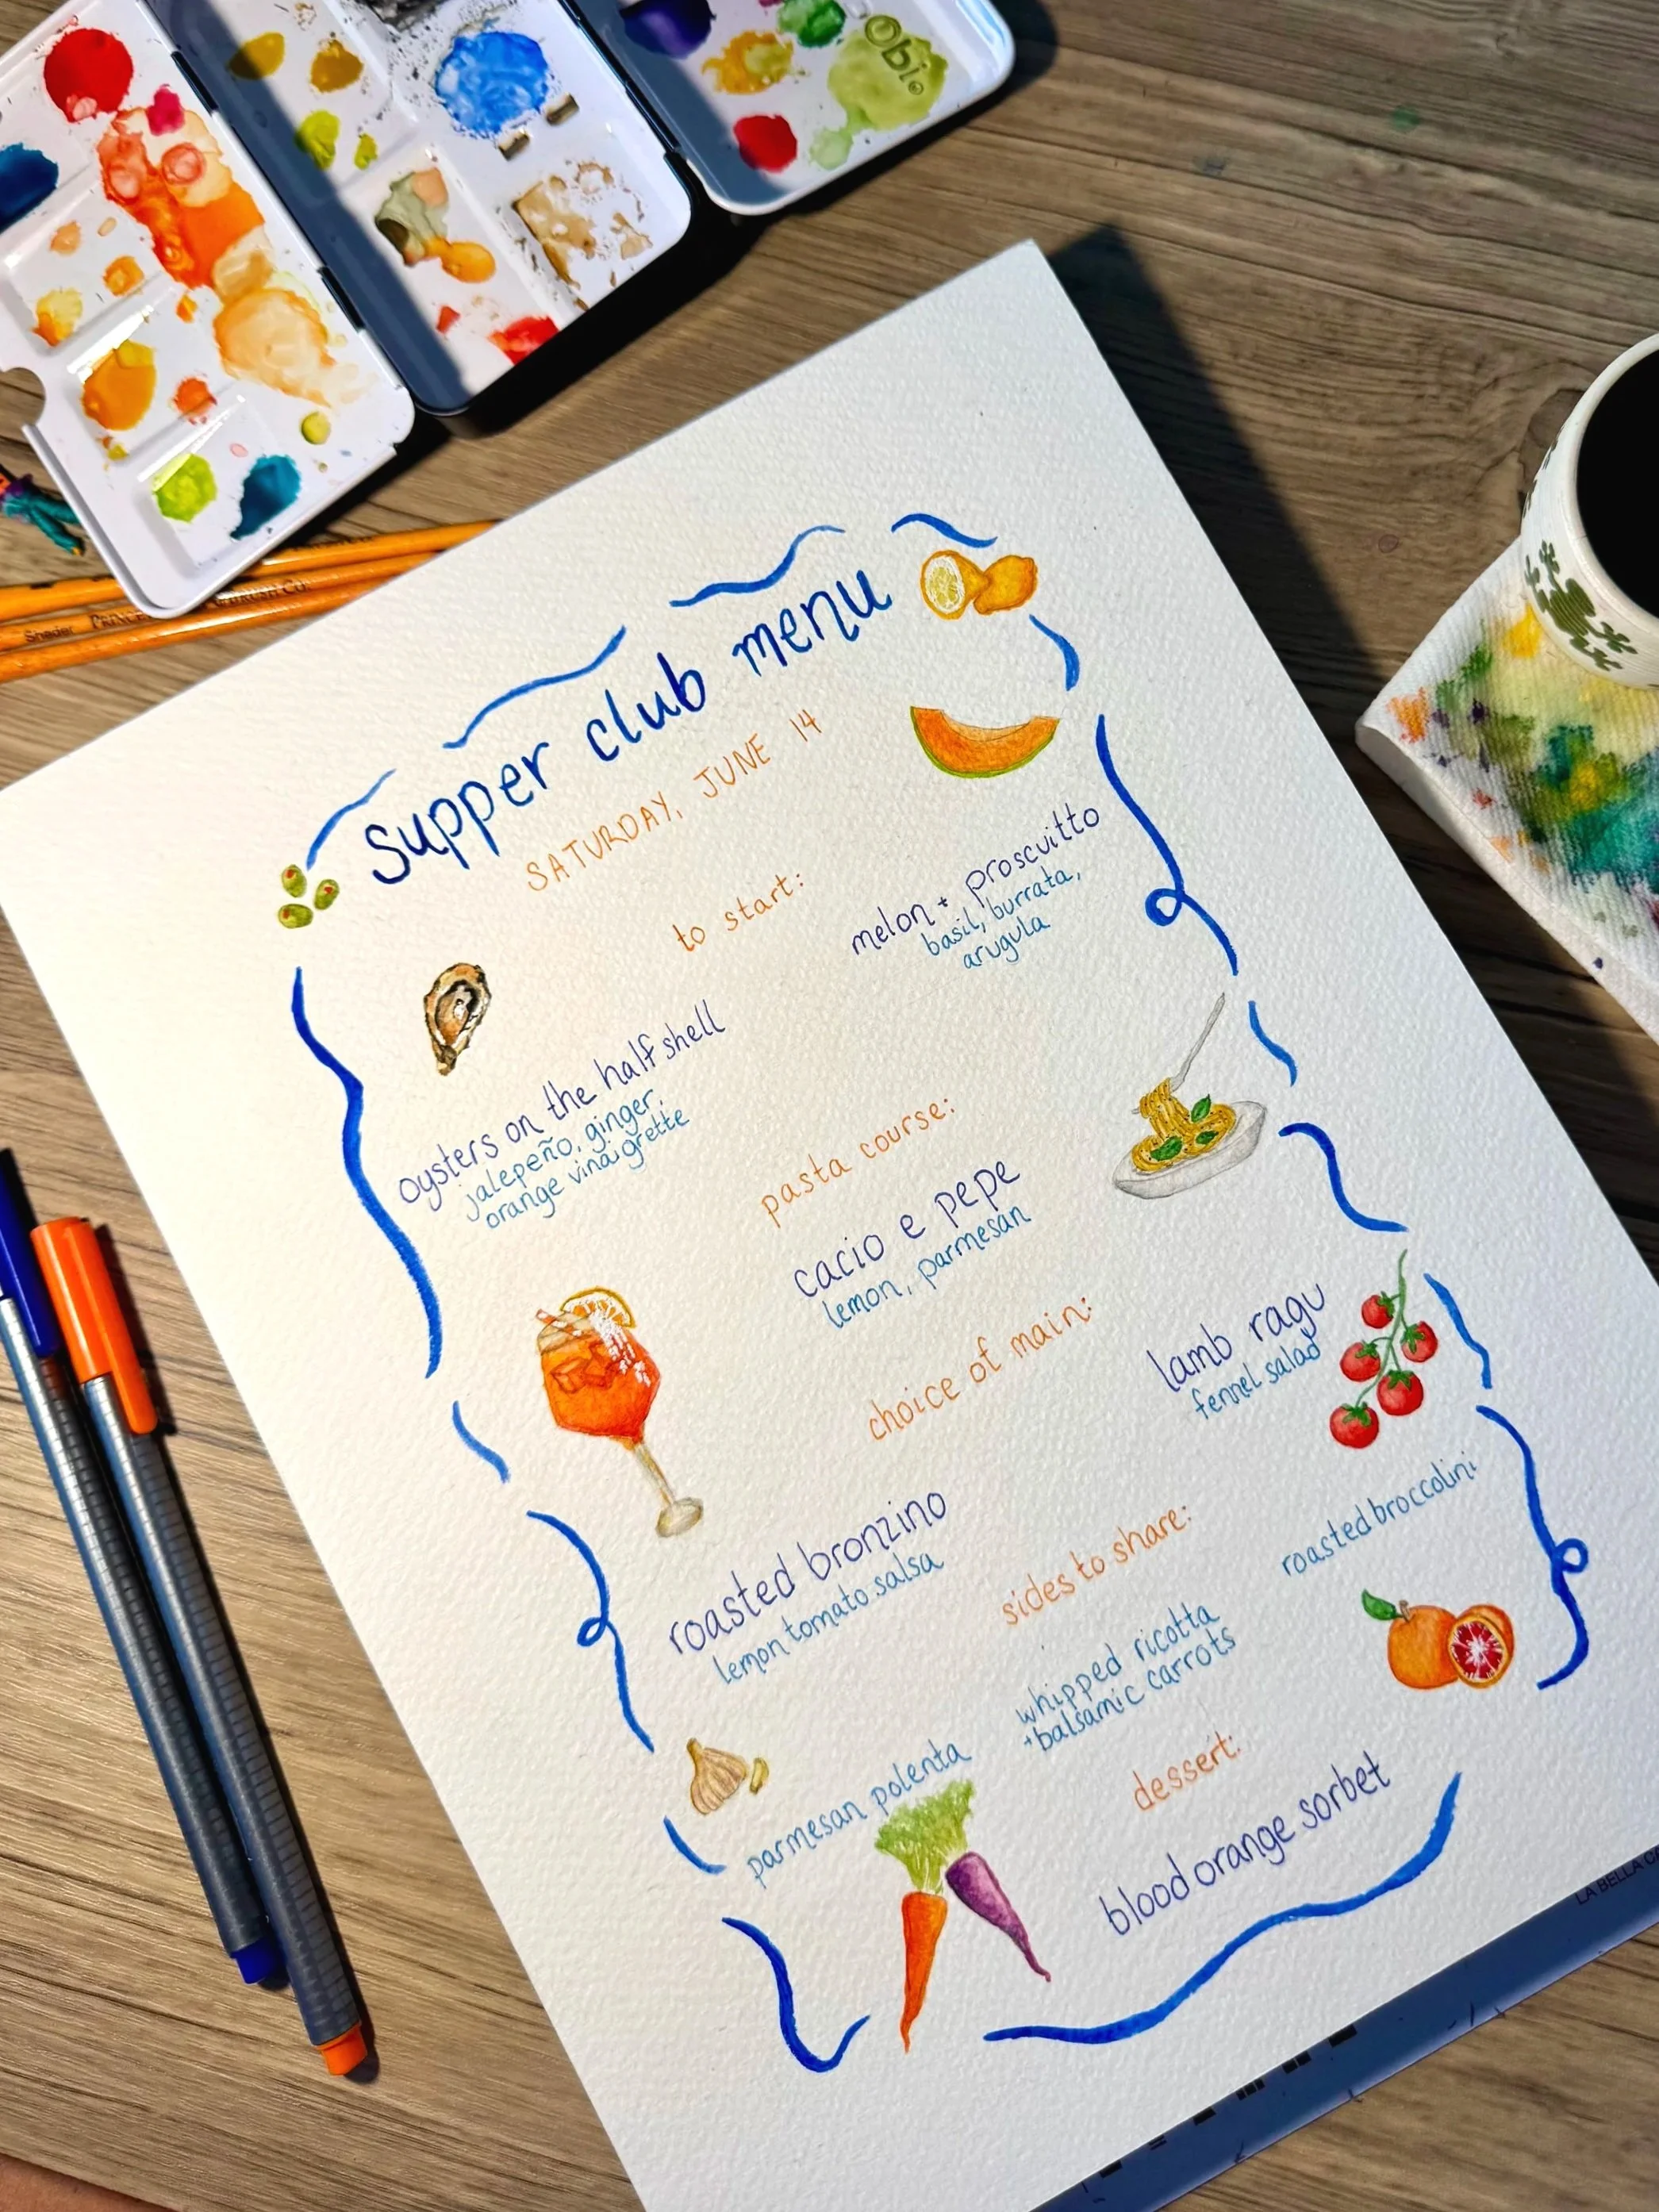 Obi®
Shader PRINCE
& BRUSH CO.
supper club menu
SATURDAY, JUNE 14
to start:
melon + proscuitto
basil, burrata,
arugula
oysters on the half shell
jalepeño, ginger,
orange vinaigrette
pasta course:
cacio e pepe
lemon, parmesan
choice of main:
lamb ragu
fennel salad
roasted bronzino
lemon tomato salsa
sides to share:
roasted broccolini
whipped ricotta
+ balsamic carrots
parmesan polenta
dessert:
blood orange sorbet
LA BELLA